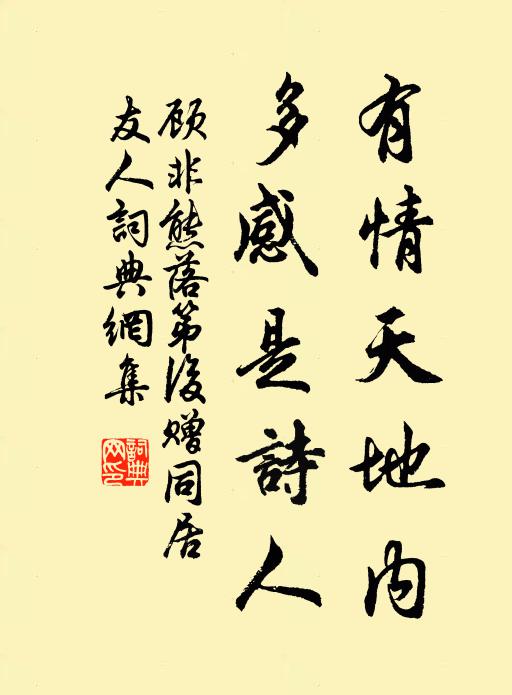 有情天地内
多感是詩人
顾非熊落第後赠同居
友人詞典網集
詞典
网印